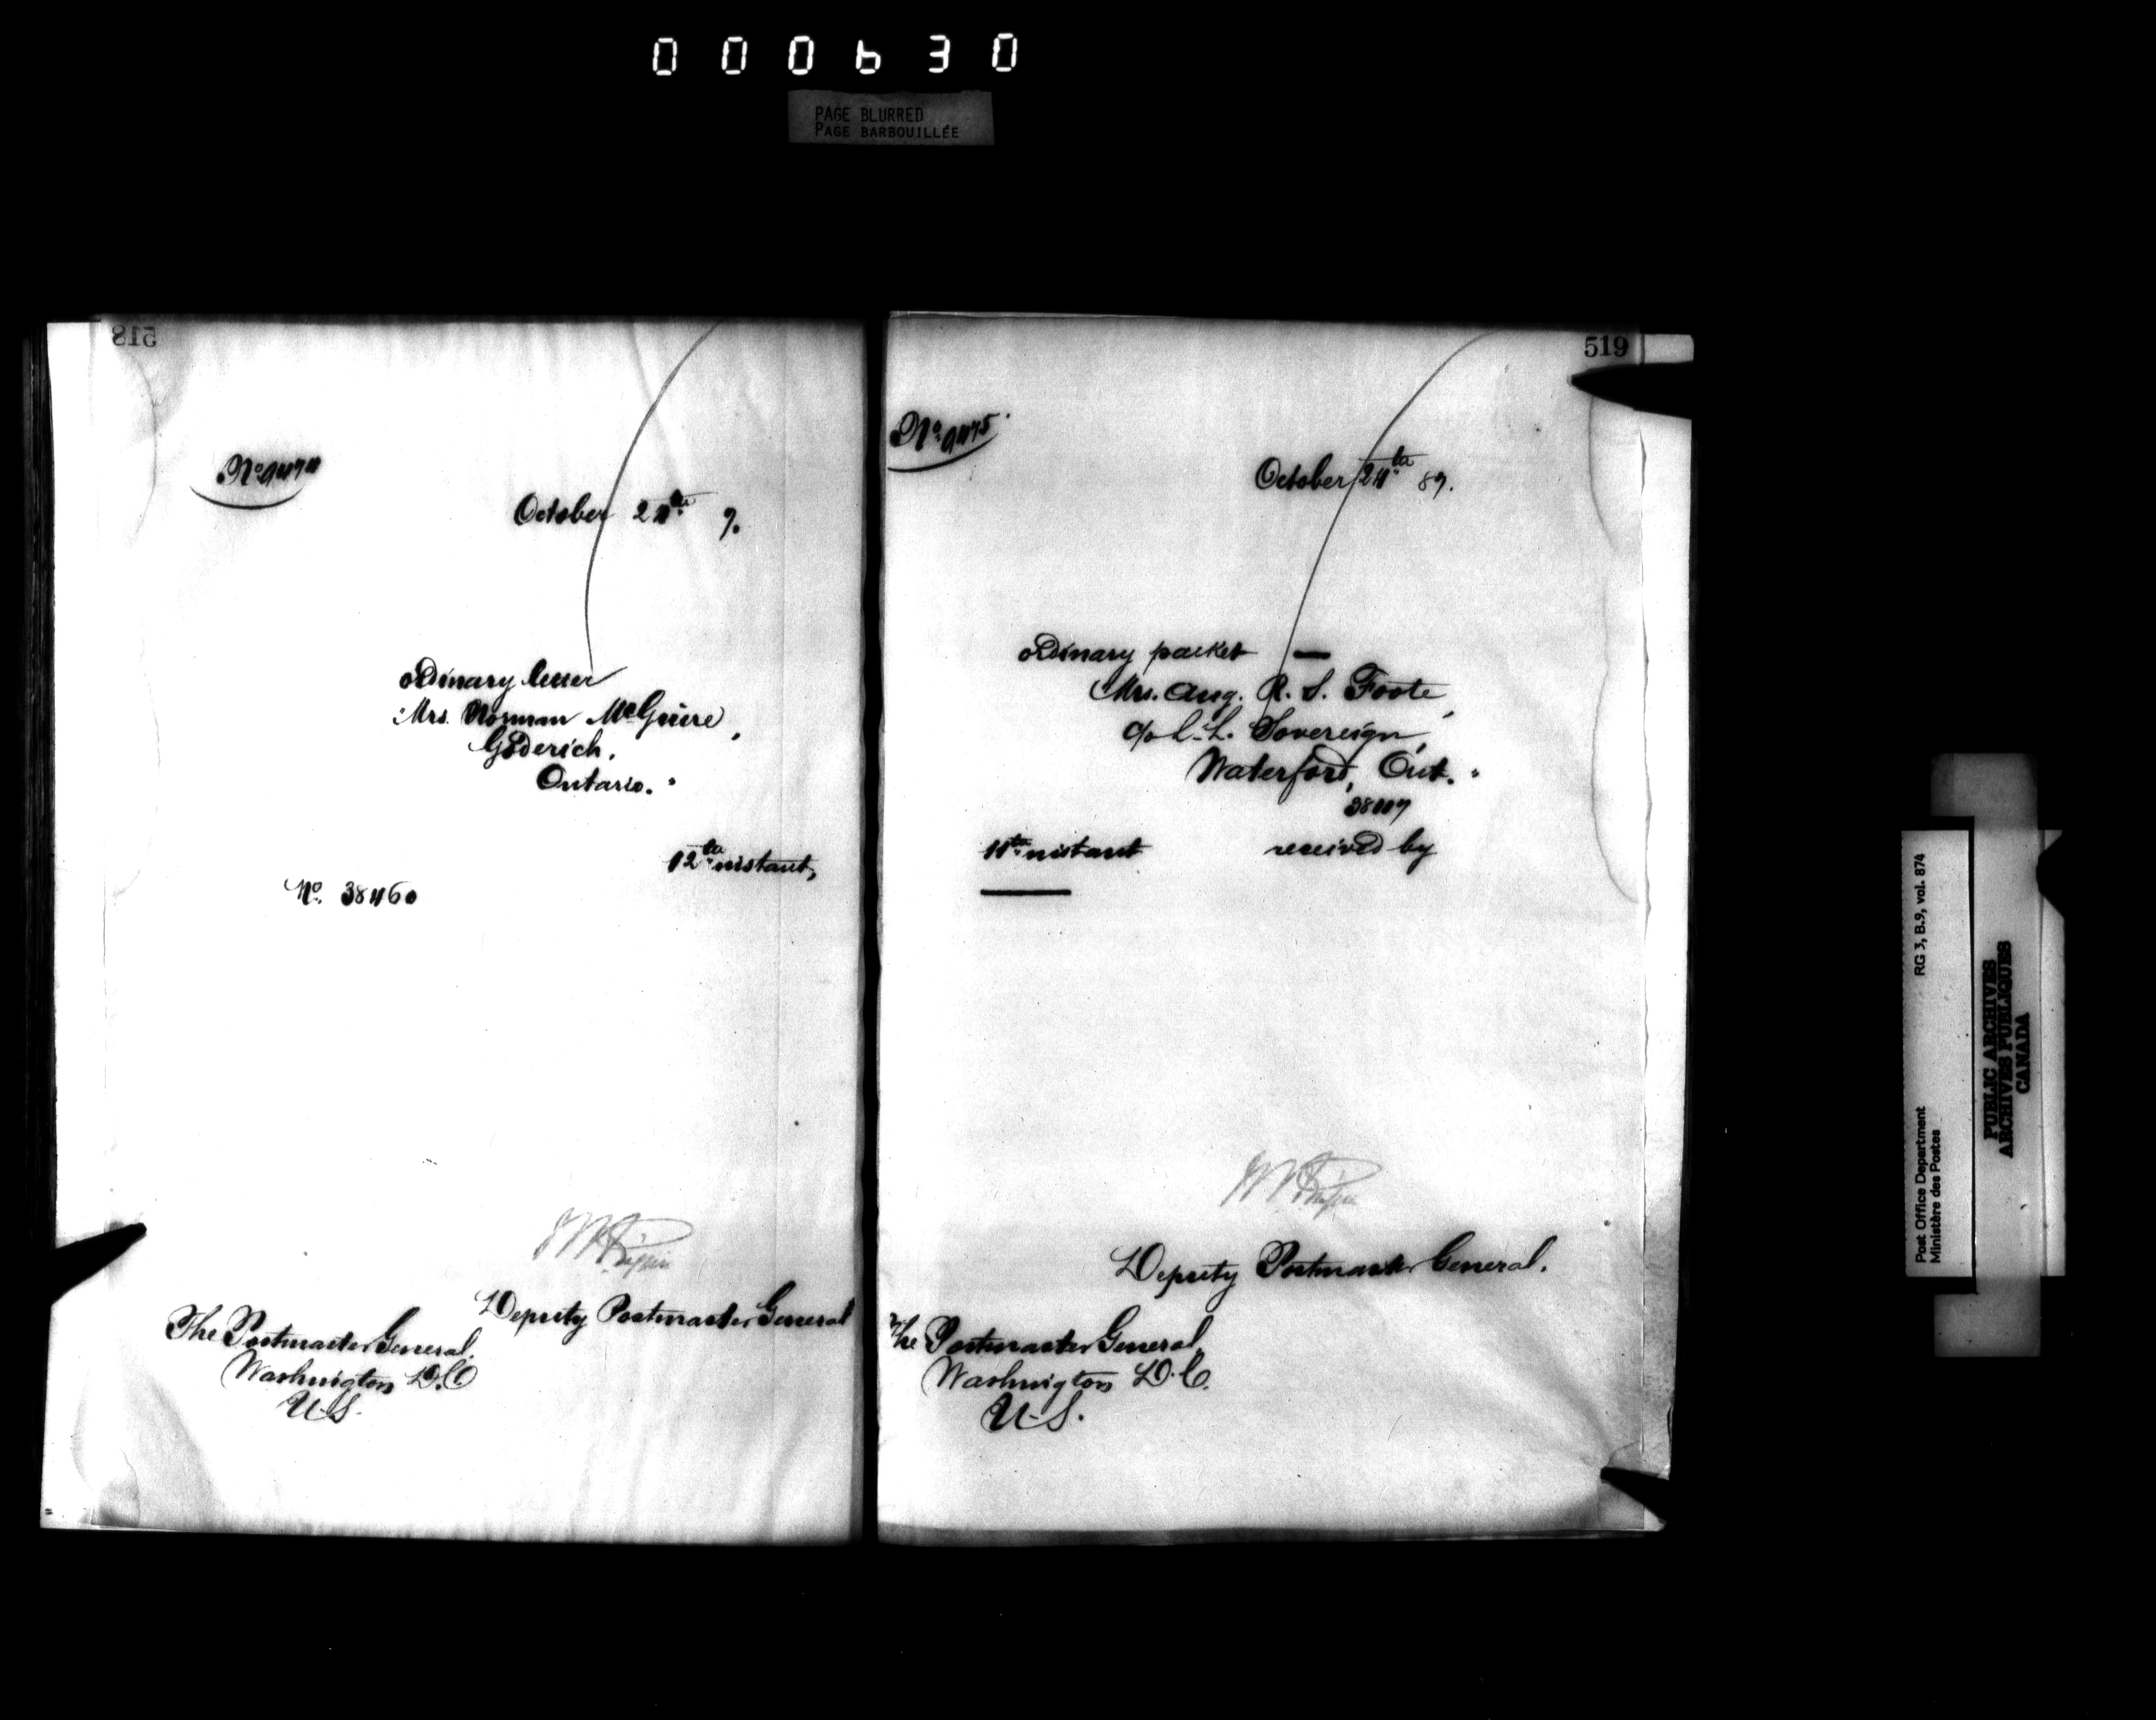 000630
PAGE BLURRED
PAGE BARBOUILLÉE
518
October 24th 7.
ordinary letter
Mrs. Norman McGuire,
Goderich,
Ontario."
12th instant,
No. 38460
Deputy Postmaster General
The Postmaster General,
Washington D.C
U.S.
519
No. 9475
October 24th 87.
ordinary packet —
Mrs. Aug. R. S. Foote,
c/o L. Sovereign,
Waterford, Ont."
received by
11th instant
Deputy Postmaster General.
The Postmaster General,
Washington D.C.
U.S.
Post Office Department RG 3, B.9, vol. 874
Ministère des Postes
PUBLIC ARCHIVES
ARCHIVES PUBLIQUES
CANADA